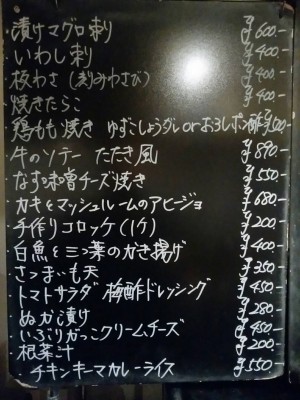 ・漬けマグロ刺 ¥600.-
・いわし刺 ¥400.-
・板わさ（刻みわさび） ¥400.-
・焼きたらこ ¥400.-
・鶏もも焼き ゆずこしょうダレorおろしポン酢 ¥900.-
・牛のソテー たたき風 ¥890.-
・なす味噌チーズ焼き ¥550.-
・カキとマッシュルームのアヒージョ ¥680.-
・手作りコロッケ(1ケ) ¥200.-
・白魚と三つ葉のかき揚げ ¥400.-
・さつまいも天 ¥350.-
・トマトサラダ 梅酢ドレッシング ¥450.-
・ぬか漬け ¥280.-
・いぶりがっこクリームチーズ ¥450.-
・根菜汁 ¥200.-
・チキンキーマカレーライス ¥550.-